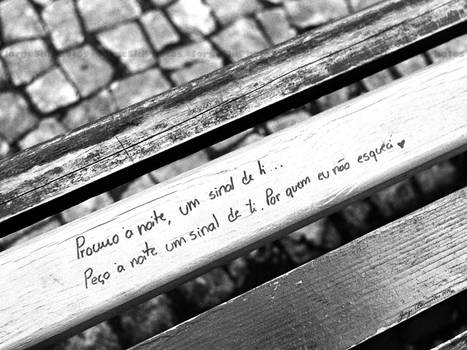 Procuro a noite, um sinal de ti...
Peço à noite um sinal de ti. Por quem eu não esqueci ♥